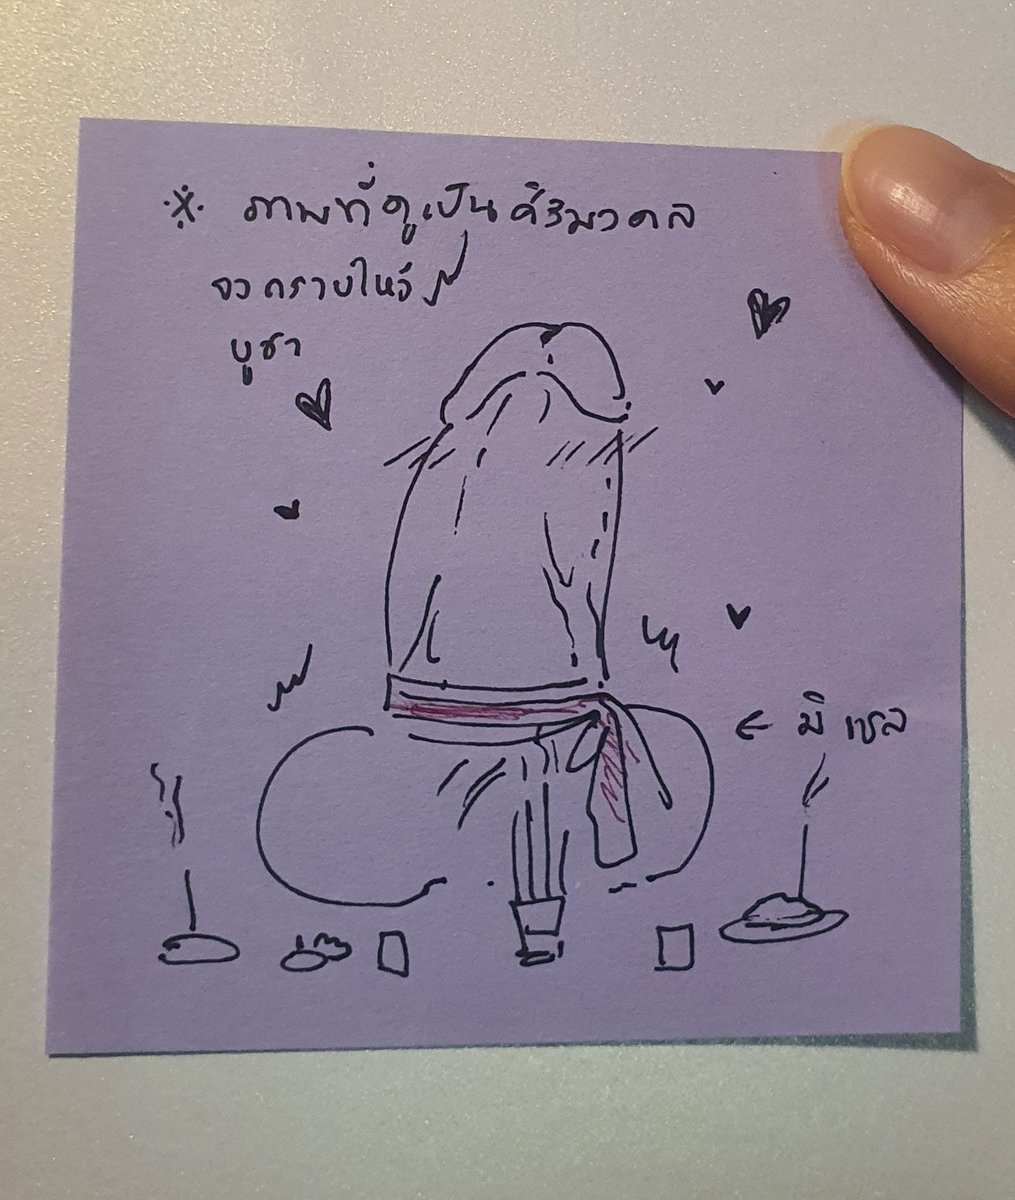 ※ ภาพที่ดูเป็นศิริมงคล
จงกราบไหว้
บูชา
← มิเชล